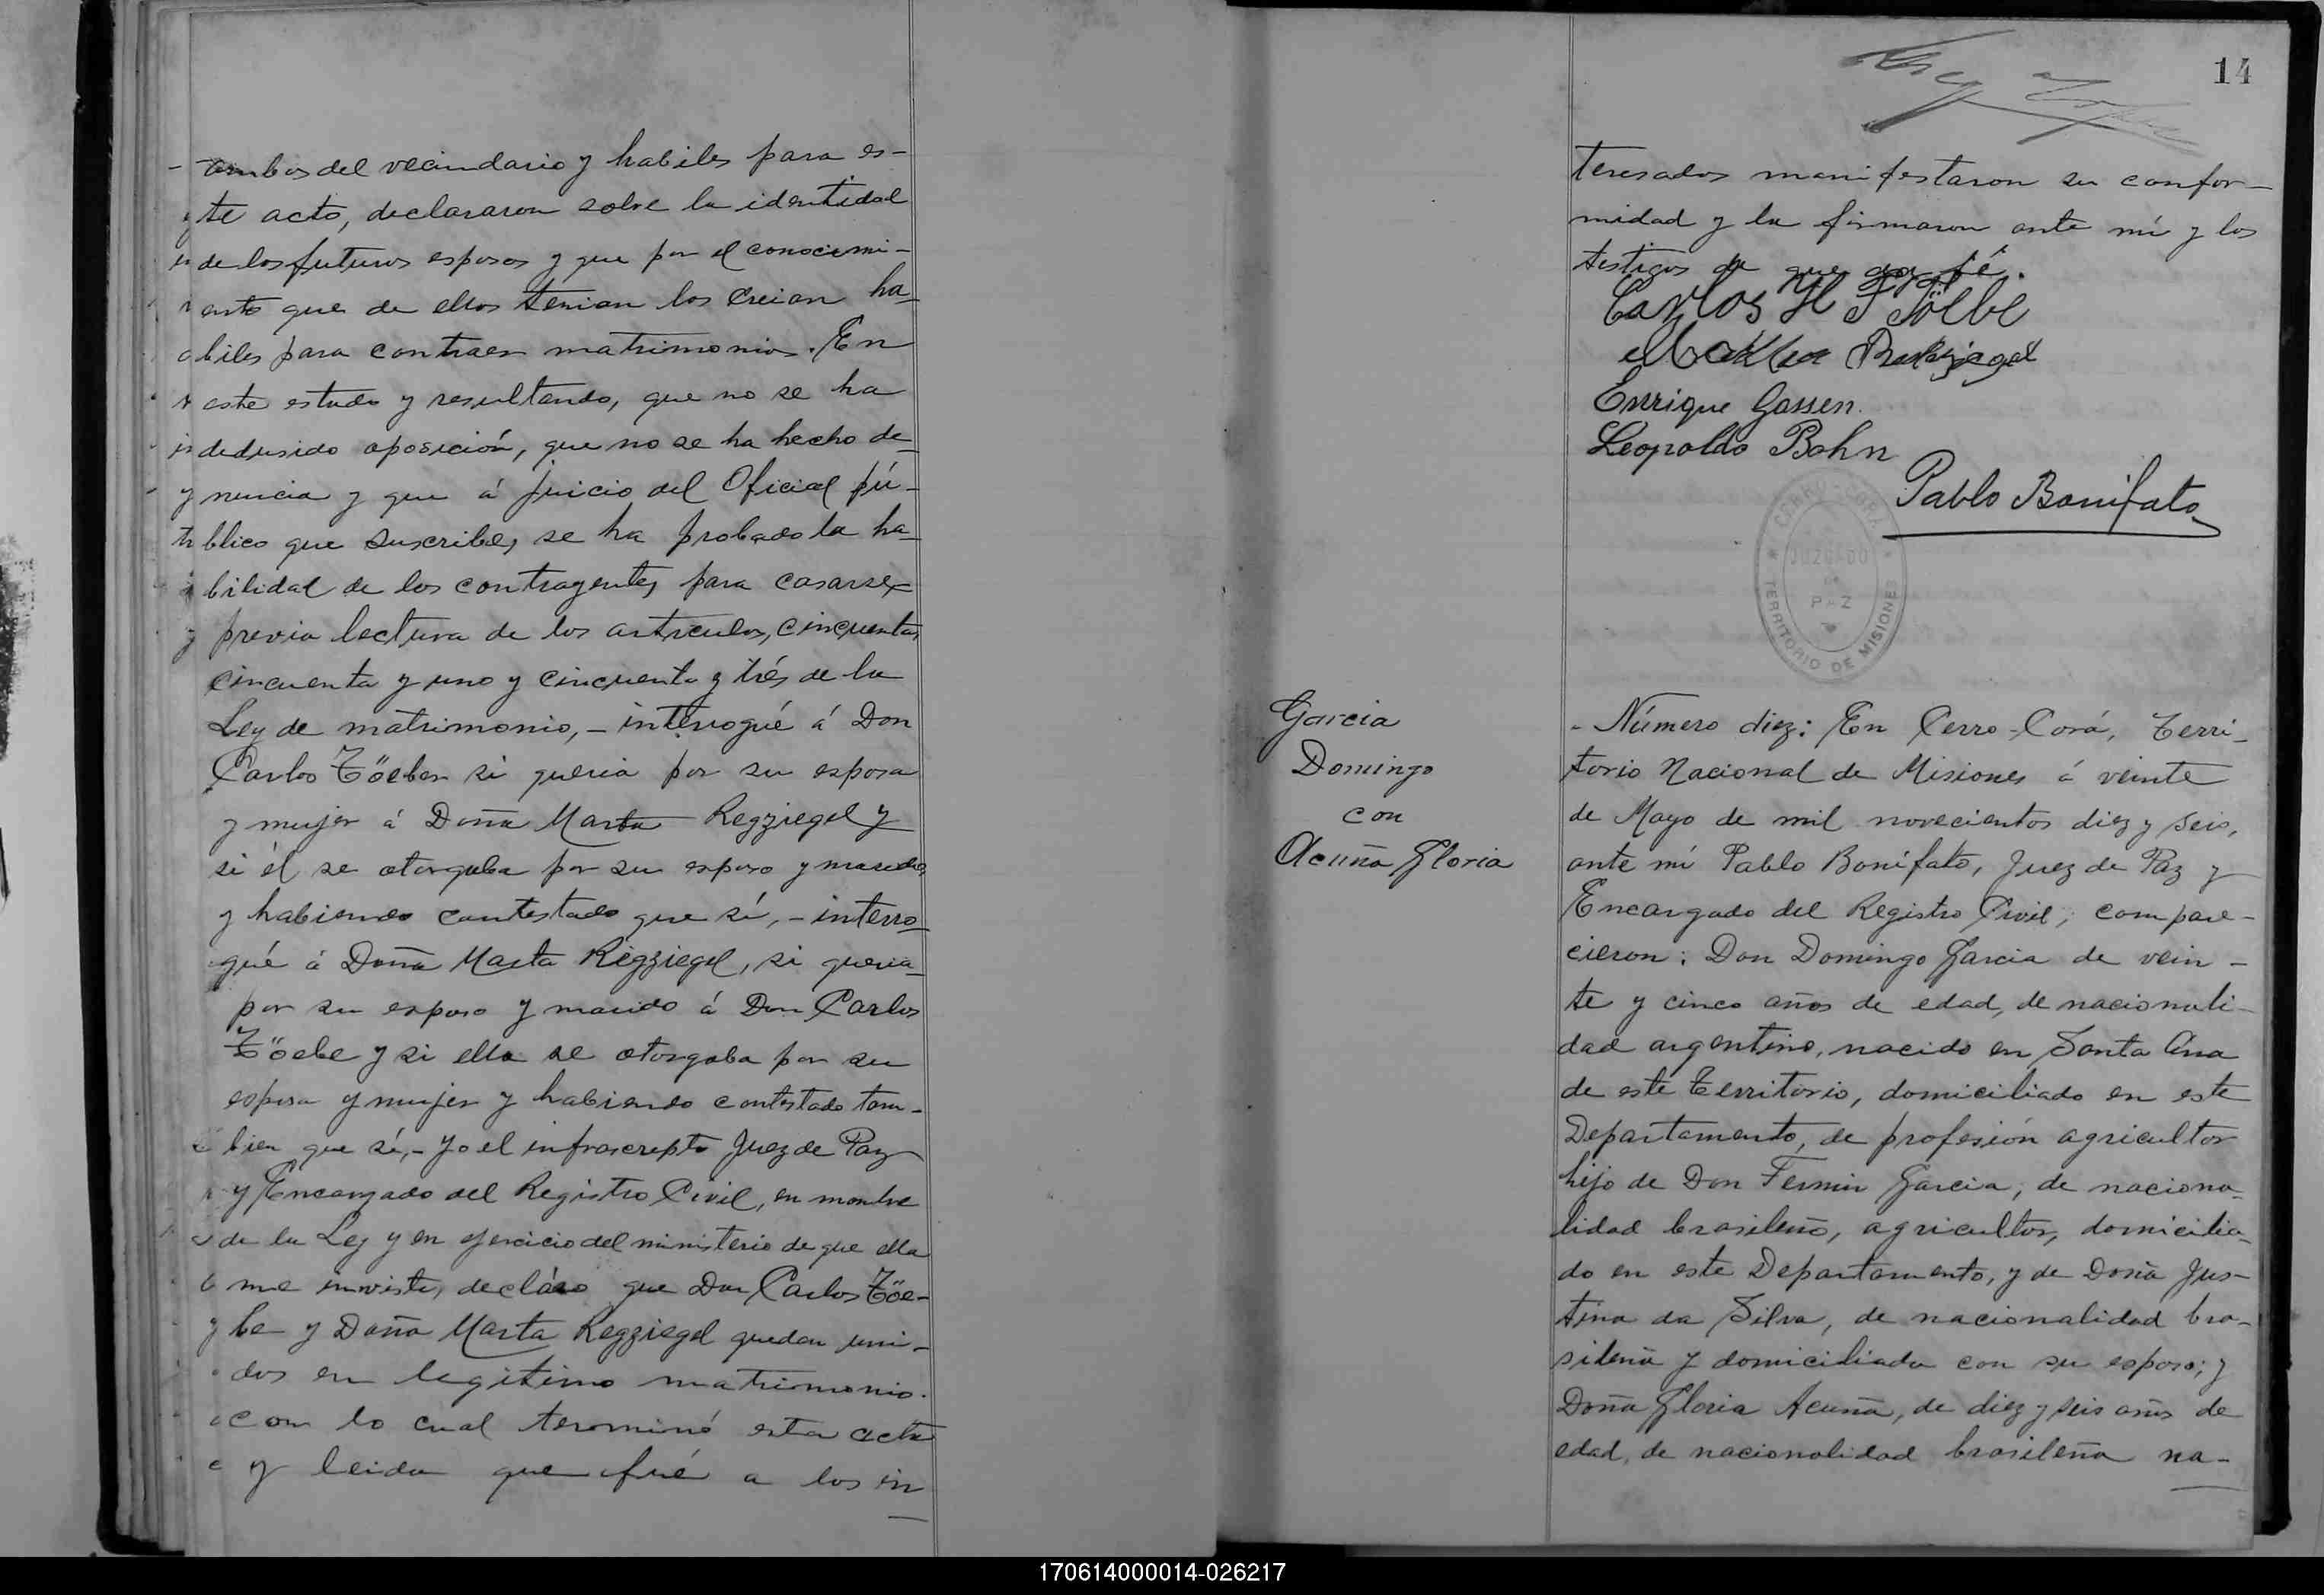 ambos del vecindario y habiles para es-
te acto, declararon sobre la identidad
de los futuros esposos y que por el conocimi-
ento que de ellos tenian los creian ha-
biles para contraer matrimonio. En
este estado y resultando, que no se ha
dedusido oposición, que no se ha hecho de-
nuncia y que á juicio del Oficial pú-
blico que suscribe, se ha probado la ha-
bilidad de los contrayentes para casarse,
previa lectura de los articulos, cincuenta,
cincuenta y uno y cincuenta y trés de la
Ley de matrimonio, - interrogué á Don
Carlos Töeber si queria por su esposa
y mujer á Doña Marta Regziegel y
si él se otorgaba por su esposo y marido,
y habiendo contestado que sí, - interro-
gué á Doña Marta Regziegel, si queria
por su esposo y marido á Don Carlos
Töebe y si ella se otorgaba por su
esposa y mujer y habiendo contestado tam-
bien que sí, - yo el infrascripto Juez de Paz
y Encargado del Registro Civil, en nombre
de la Ley y en ejercicio del ministerio de que ella
me inviste, declaro que Don Carlos Töe-
be y Doña Marta Regziegel quedan uni-
dos en legitimo matrimonio.
con lo cual terminó esta acta
y leida que fué a los in
14
teresados manifestaron su confor-
midad y la firmaron ante mí y los
testigos de que doy fé.
Carlos H Töebe
Enrique Gassen.
Leopoldo Bohn
Pablo Bonifato
CERRO-CORÁ
JUZGADO
DE
PAZ
TERRITORIO DE MISIONES
Garcia
Domingo
con
Acuña Gloria
- Número diez: En Cerro-Corá, Terri-
torio Nacional de Misiones á veinte
de Mayo de mil novecientos diez y seis,
ante mí Pablo Bonifato, Juez de Paz y
Encargado del Registro Civil, compare-
cieron: Don Domingo Garcia de vein-
te y cinco años de edad, de nacionali-
dad argentino, nacido en Santa Ana
de este Territorio, domiciliado en este
Departamento, de profesión agricultor
hijo de Don Fermin Garcia, de naciona-
lidad brasileño, agricultor, domicilia-
do en este Departamento, y de Doña Jus-
tina da Silva, de nacionalidad bra-
sileña y domiciliada con su esposo; y
Doña Gloria Acuña, de diez y seis años de
edad, de nacionalidad brasileña na-
170614000014-026217